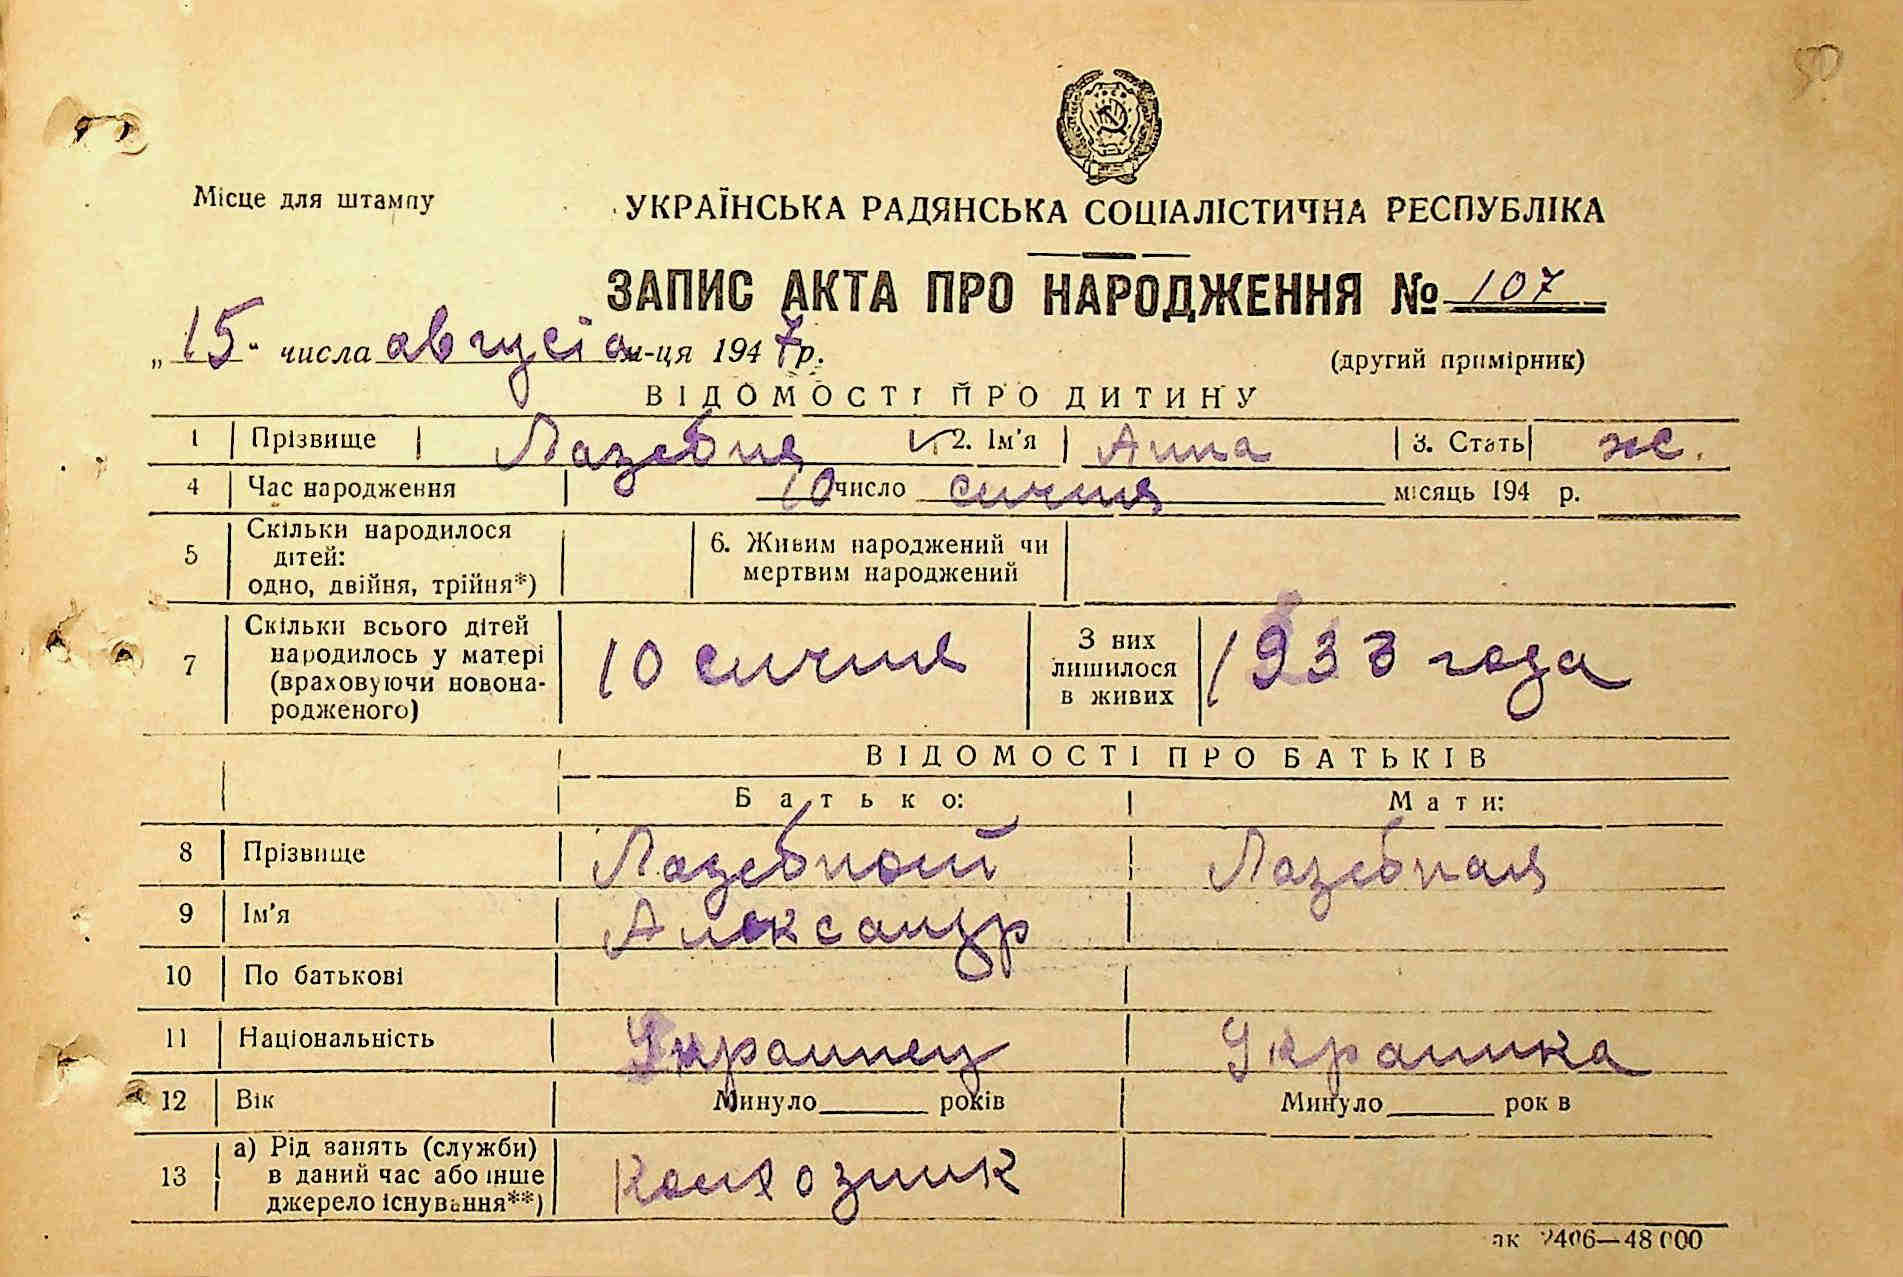 50
Місце для штампу
УКРАЇНСЬКА РАДЯНСЬКА СОЦІАЛІСТИЧНА РЕСПУБЛІКА
ЗАПИС АКТА ПРО НАРОДЖЕННЯ № 107
„15“ числа августа м-ця 1947 р.
(другий примірник)
ВІДОМОСТІ ПРО ДИТИНУ
1 Прізвище Лазебня 2. Ім'я Анна 3. Стать ж.
4 Час народження 10 число січня місяць 194 р.
5 Скільки народилося дітей: одно, двійня, трійня*) 6. Живим народжений чи мертвим народжений
7 Скільки всього дітей народилось у матері (враховуючи новонародженого) 10 січня З них лишилося в живих 1933 года
ВІДОМОСТІ ПРО БАТЬКІВ
Батько: Мати:
8 Прізвище Лазебной Лазебная
9 Ім'я Александр
10 По батькові
11 Національність Украинец Украинка
12 Вік Минуло років Минуло рок в
13 а) Рід занять (служби) в даний час або інше джерело існування**) Колхозник
ак 2406—48 000